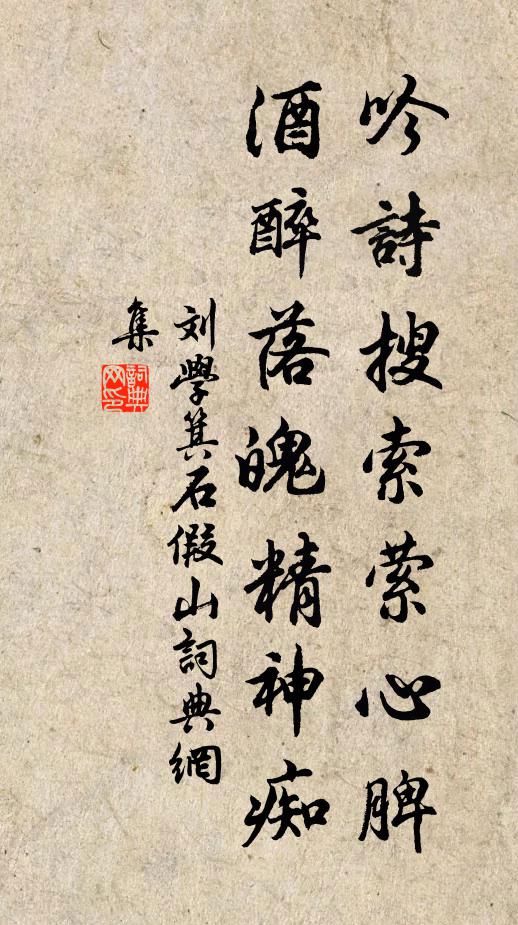 吟詩搜索縈心脾
酒醉落魄精神痴
刘學箕石假山詞典網
集
詞典
网印